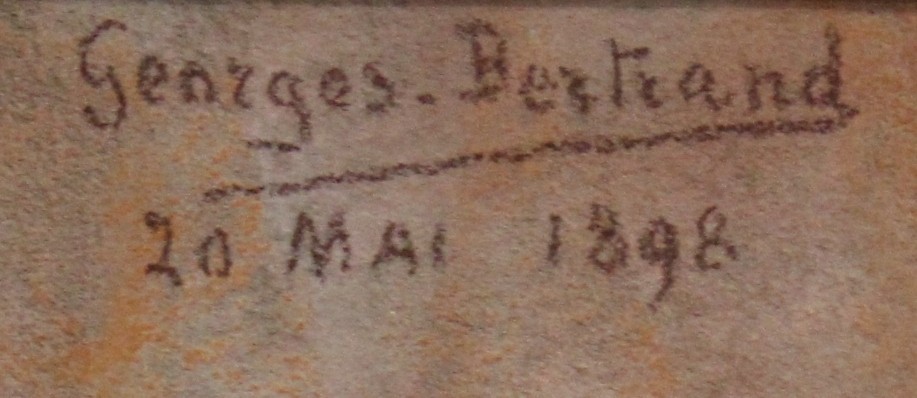 Georges. Bertrand
20 MAI 1898